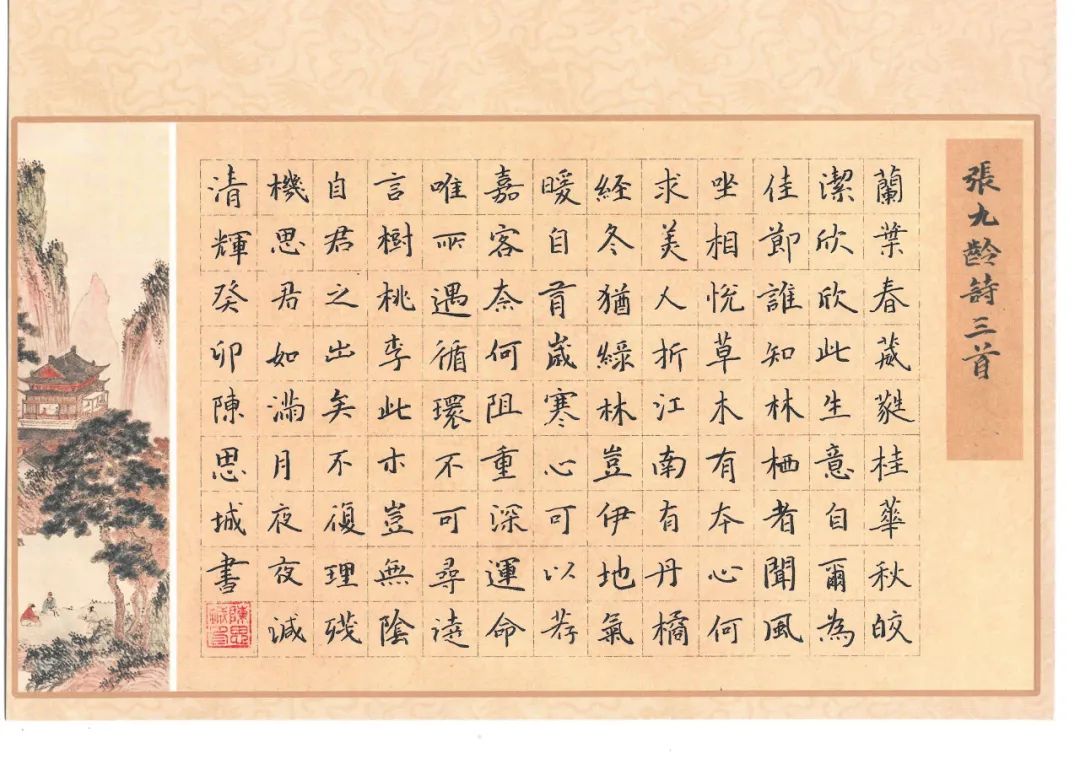 張九齡詩三首
蘭葉春葳蕤桂華秋皎
潔欣欣此生意自爾為
佳節誰知林栖者聞風
坐相悅草木有本心何
求美人折江南有丹橘
經冬猶綠林豈伊地氣
暖自有歲寒心可以荐
嘉客奈何阻重深運命
唯所遇循環不可尋徒
言樹桃李此木豈無陰
自君之出矣不復理殘
機思君如滿月夜夜減
清輝癸卯陳思城書